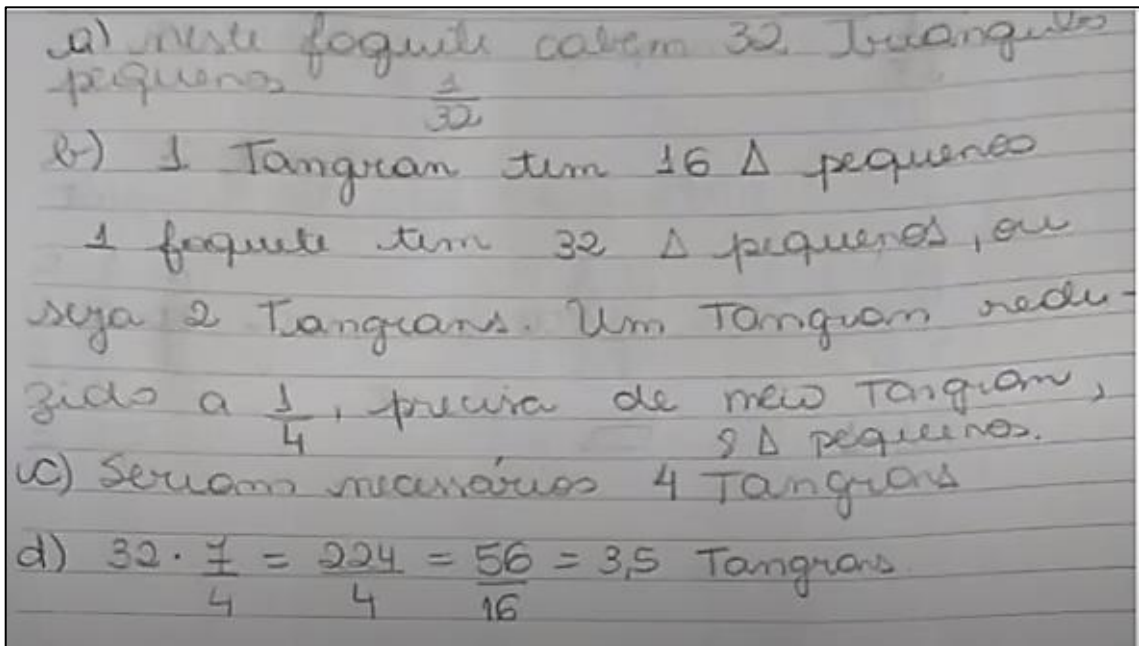 a) neste foguete cabem 32 triangulos
pequenos 1/32
b) 1 Tangran tem 16 Δ pequenos
1 foguete tem 32 Δ pequenos, ou
seja 2 Tangrans. Um Tangram redu-
zido a 1/4, precisa de meio Tangram,
8 Δ pequenos.
c) Seriam necessários 4 Tangrans
d) 32 · 7/4 = 224/4 = 56/16 = 3,5 Tangrans